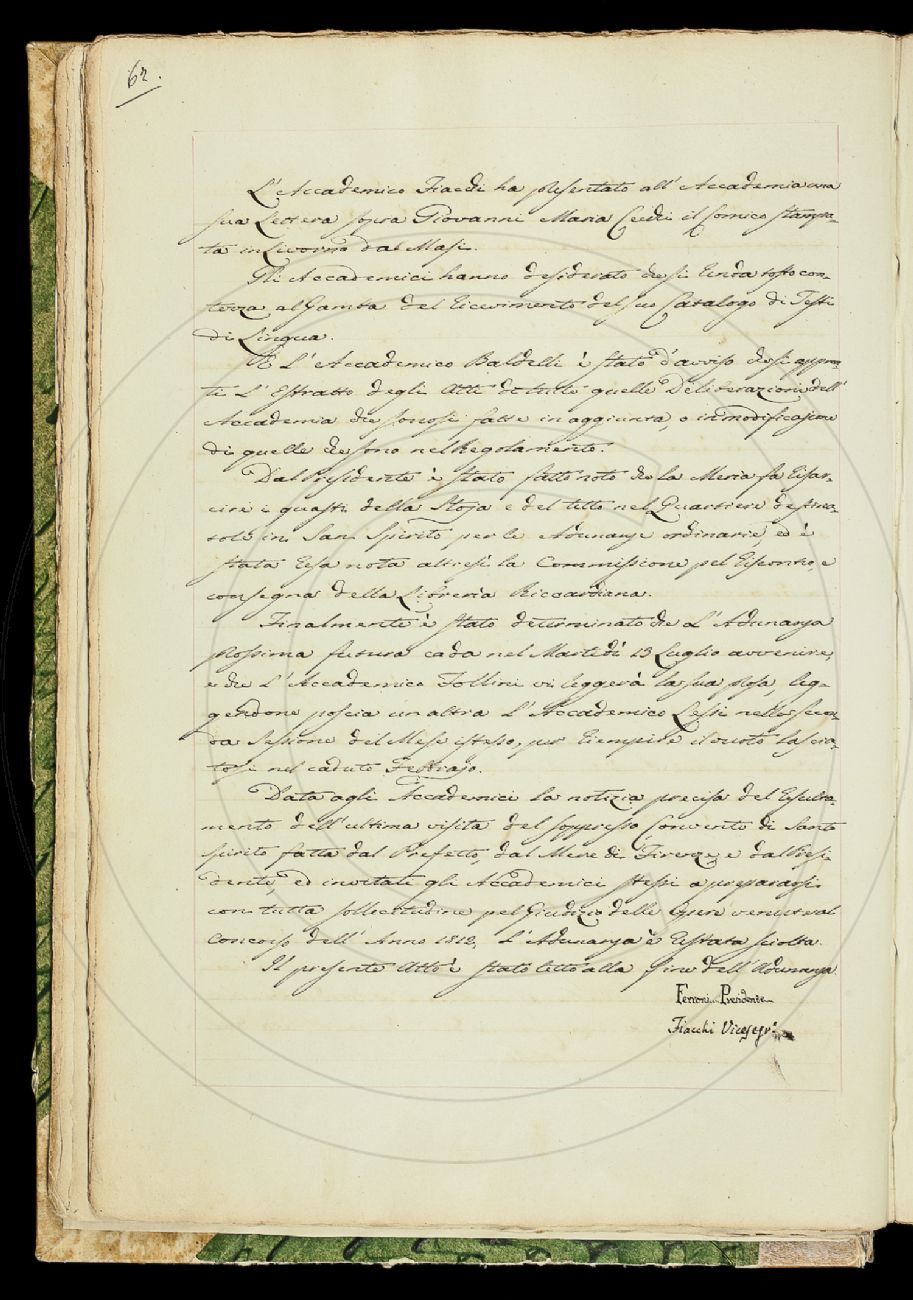 62.
L'Accademico Fiacchi ha presentato all'Accademia una
sua Lettera sopra Giovanni Maria Cecchi il Comico stampa-
ta in Livorno dal Masi.
Gli Accademici hanno desiderato che si renda tosto con-
tezza al Gamba del ricevimento del suo Catalogo di Testi
di Lingua.
E L'Accademico Baldelli è stato d'avviso che si appron-
ti L'Estratto degli Atti di tutte quelle Deliberazioni dell'
Accademia che sonosi fatte in aggiunta, o in modificazione
di quelle che sono nel Regolamento.
Dal Presidente è stato fatto noto che la Meria fa risar-
cire i guasti della Stoja e del tetto nel Quartiere desti-
in San Spirito per le Adunanze ordinarie, ed è
stata resa nota altresì la Commissione pel riscontro, e
consegna della Libreria Riccardiana.
Finalmente è stato determinato che L'Adunanza
prossima futura cada nel Martedì 13 Luglio avvenire,
e che L'Accademico Follini vi leggerà la sua prosa, leg-
gendone poscia un altra L'Accademico Lessi nella secon-
da Sessione del Mese istesso, per riempire il vuoto lascia-
tosi nel caduto Febbrajo.
Data agli Accademici la notizia precisa del resulta-
mento dell'ultima visita del soppresso Convento di Santo
Spirito fatta dal Prefetto, dal Mere di Firenze, e dal Presi-
dente, ed invitati gli Accademici stessi a prepararsi
con tutta sollecitudine pel Giudizio delle Opere venute al
Concorso dell'Anno 1812, L'Adunanza è restata sciolta.
Il presente Atto è stato letto alla fine dell'Adunanza
Ferroni Presidente
Fiacchi Vicesegr.